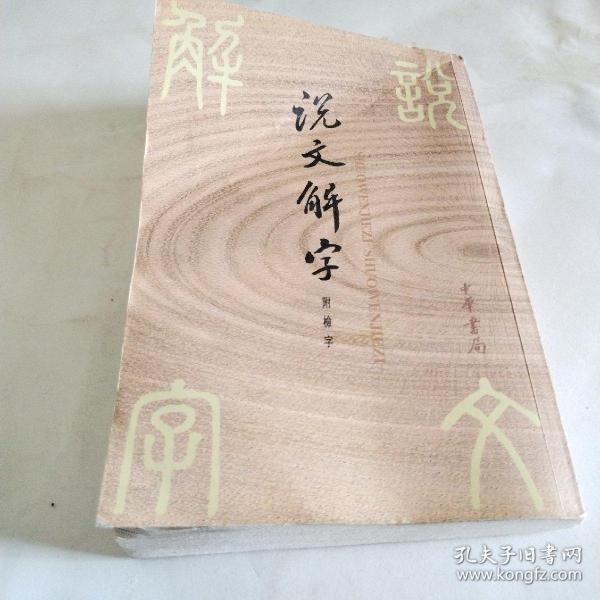 説
文
解
字
说文解字
附检字
SHUOWENJIEZI SHUOWENJIEZI
中华书局
孔夫子旧书网
www.kongfz.com